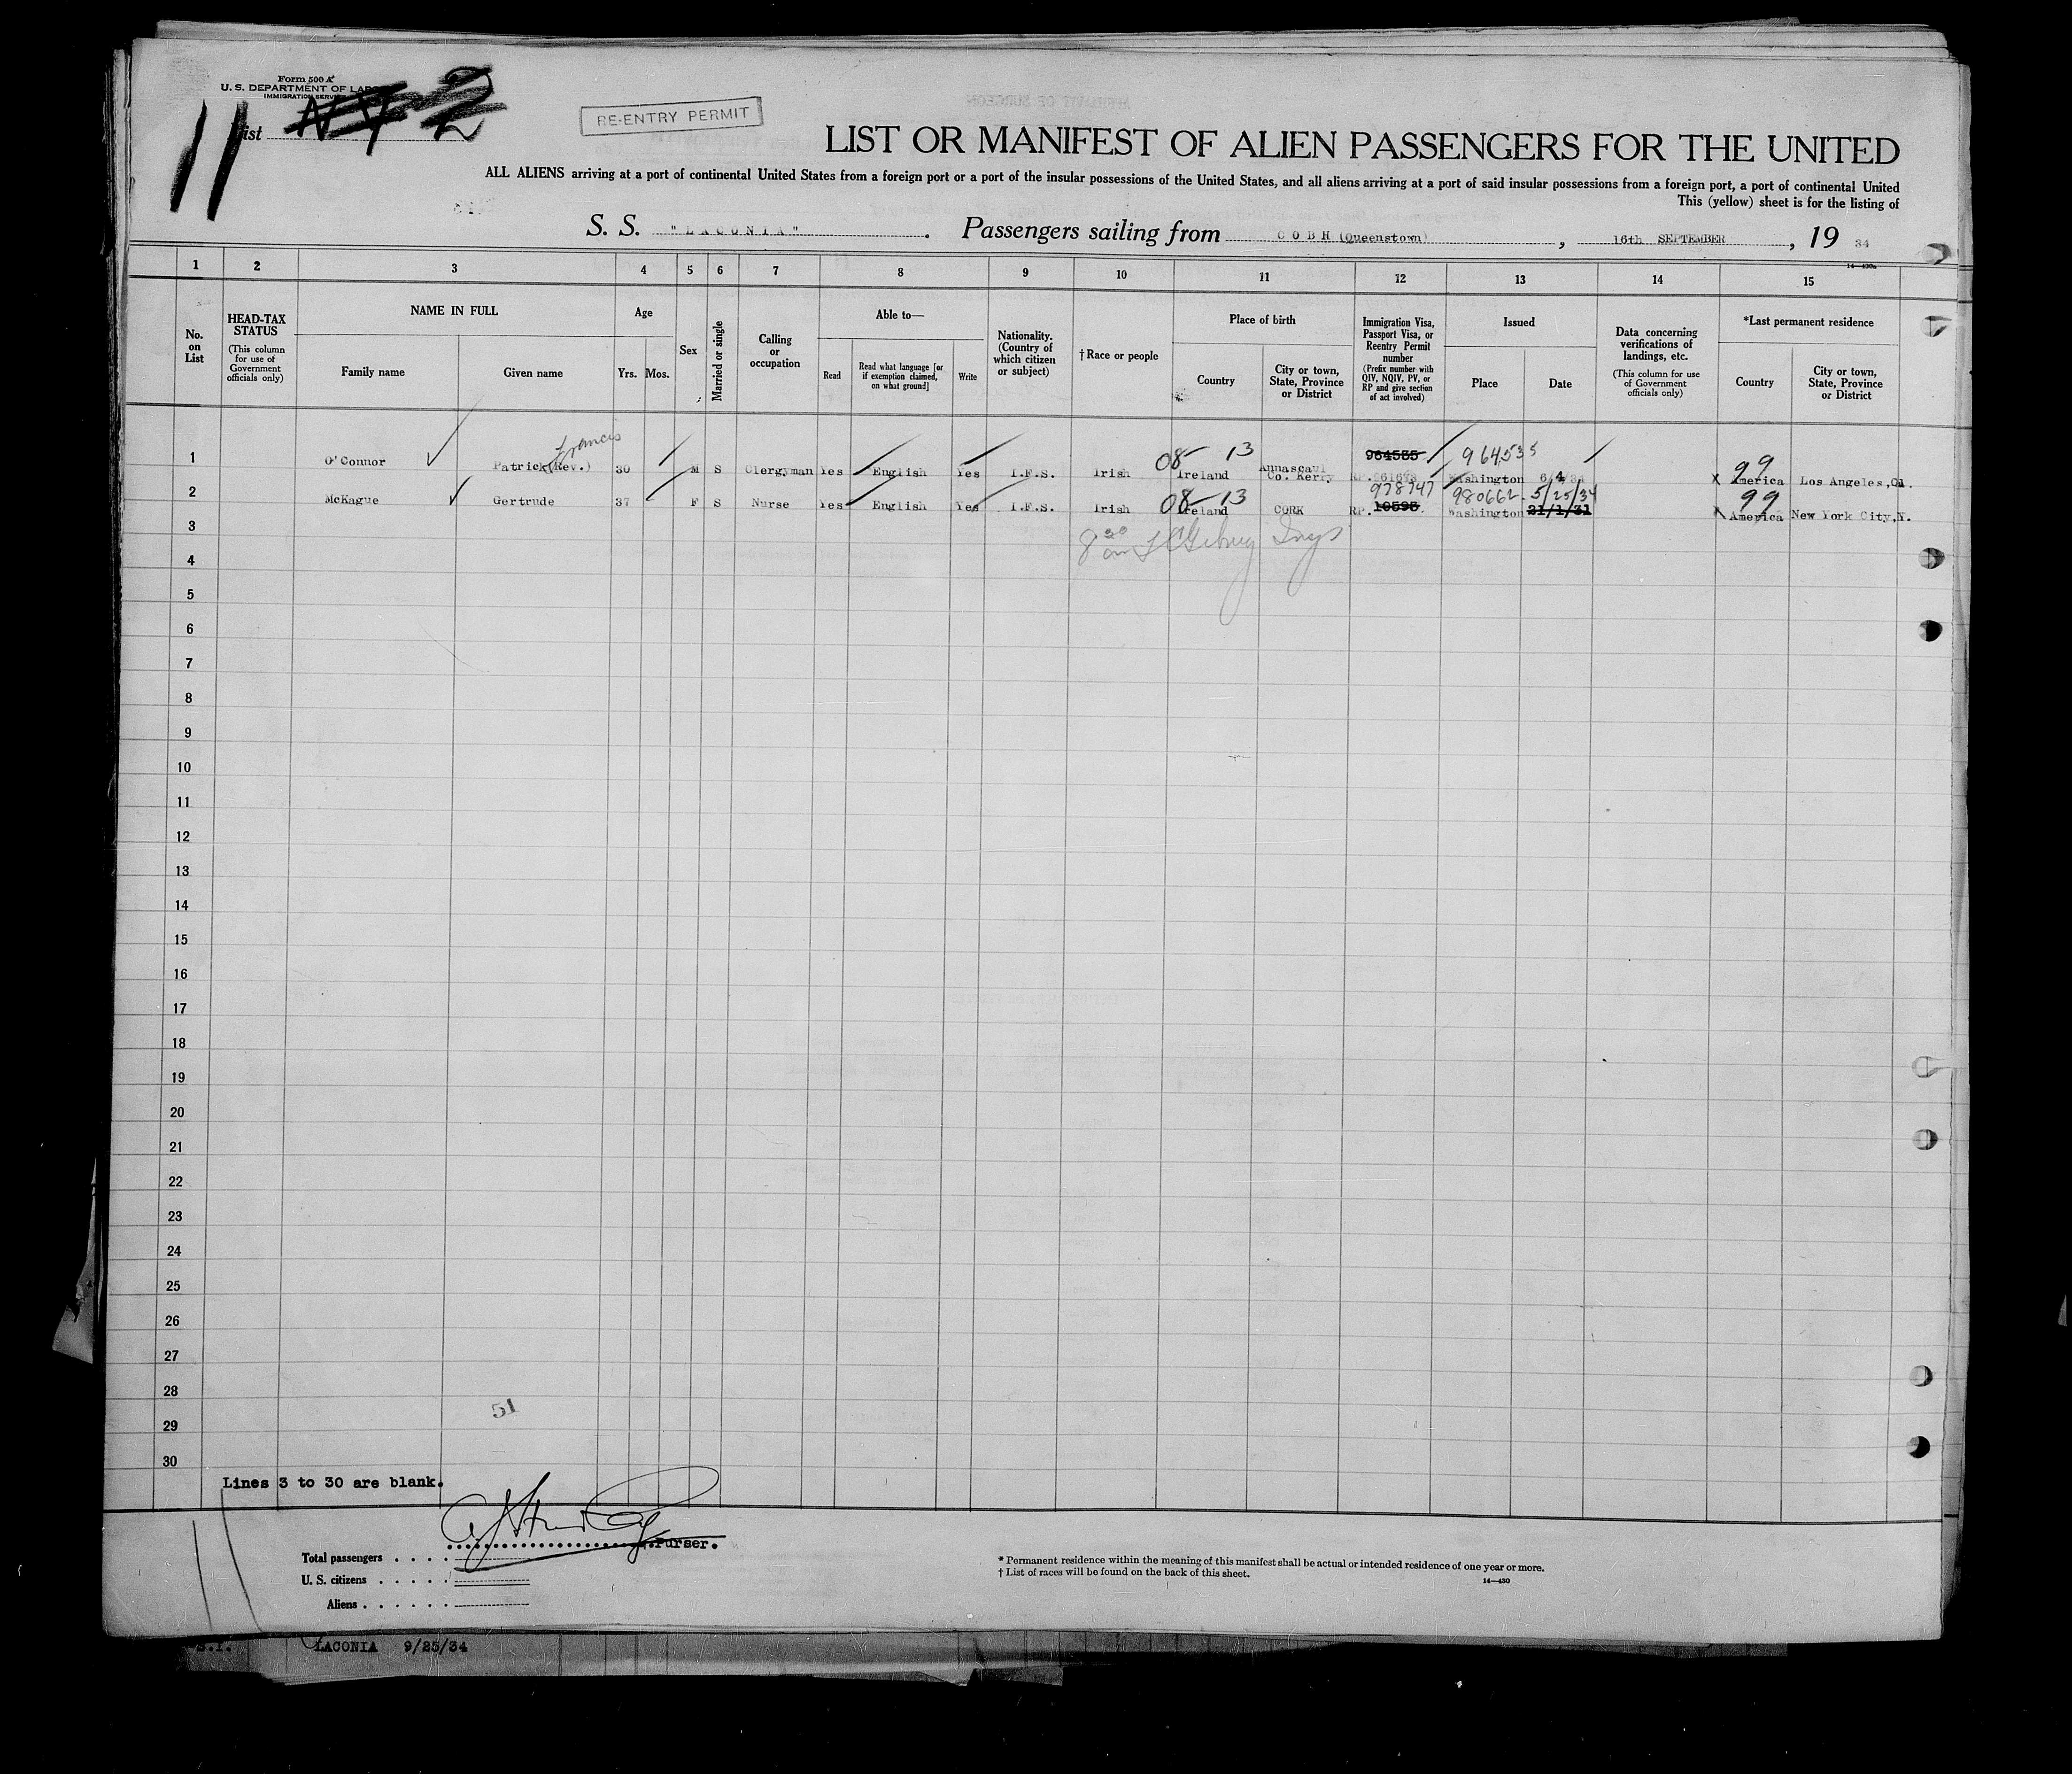 Form 500 A
U. S. DEPARTMENT OF LABOR
IMMIGRATION SERVICE
11
List
2
RE-ENTRY PERMIT
LIST OR MANIFEST OF ALIEN PASSENGERS FOR THE UNITED
ALL ALIENS arriving at a port of continental United States from a foreign port or a port of the insular possessions of the United States, and all aliens arriving at a port of said insular possessions from a foreign port, a port of continental United
This (yellow) sheet is for the listing of
S. S. "LACONIA". Passengers sailing from COBH (Queenstown), 16th SEPTEMBER, 19 34
1 2 3 4 5 6 7 8 9 10 11 12 13 14 15
No. on List
HEAD-TAX STATUS (This column for use of Government officials only)
NAME IN FULL
Family name
Given name
Age
Yrs. Mos.
Sex
Married or single
Calling or occupation
Able to—
Read
Read what language [or if exemption claimed, on what ground]
Write
Nationality. (Country of which citizen or subject)
†Race or people
Place of birth
Country
City or town, State, Province or District
Immigration Visa, Passport Visa, or Reentry Permit number (Prefix number with QIV, NQIV, PV, or RP and give section of act involved)
Issued
Place
Date
Data concerning verifications of landings, etc. (This column for use of Government officials only)
*Last permanent residence
Country
City or town, State, Province or District
Francis 08 13 964535 964535 99
1 O'Connor Patrick (Rev.) 30 M S Clergyman Yes English Yes I.F.S. Irish Ireland Annascaul Co. Kerry RP. Washington America Los Angeles,
08 13 978747 980662 5/25/34 99
2 McKague Gertrude 37 F S Nurse Yes English Yes I.F.S. Irish Ireland CORK RP. 10595 Washington 21/1/31 America New York City,
3
4
5
6
7
8
9
10
11
12
13
14
15
16
17
18
19
20
21
22
23
24
25
26
27
28
51
29
30
Lines 3 to 30 are blank.
Purser.
Total passengers
U. S. citizens
Aliens
* Permanent residence within the meaning of this manifest shall be actual or intended residence of one year or more.
† List of races will be found on the back of this sheet.
14—430
S.I. LACONIA 9/25/34